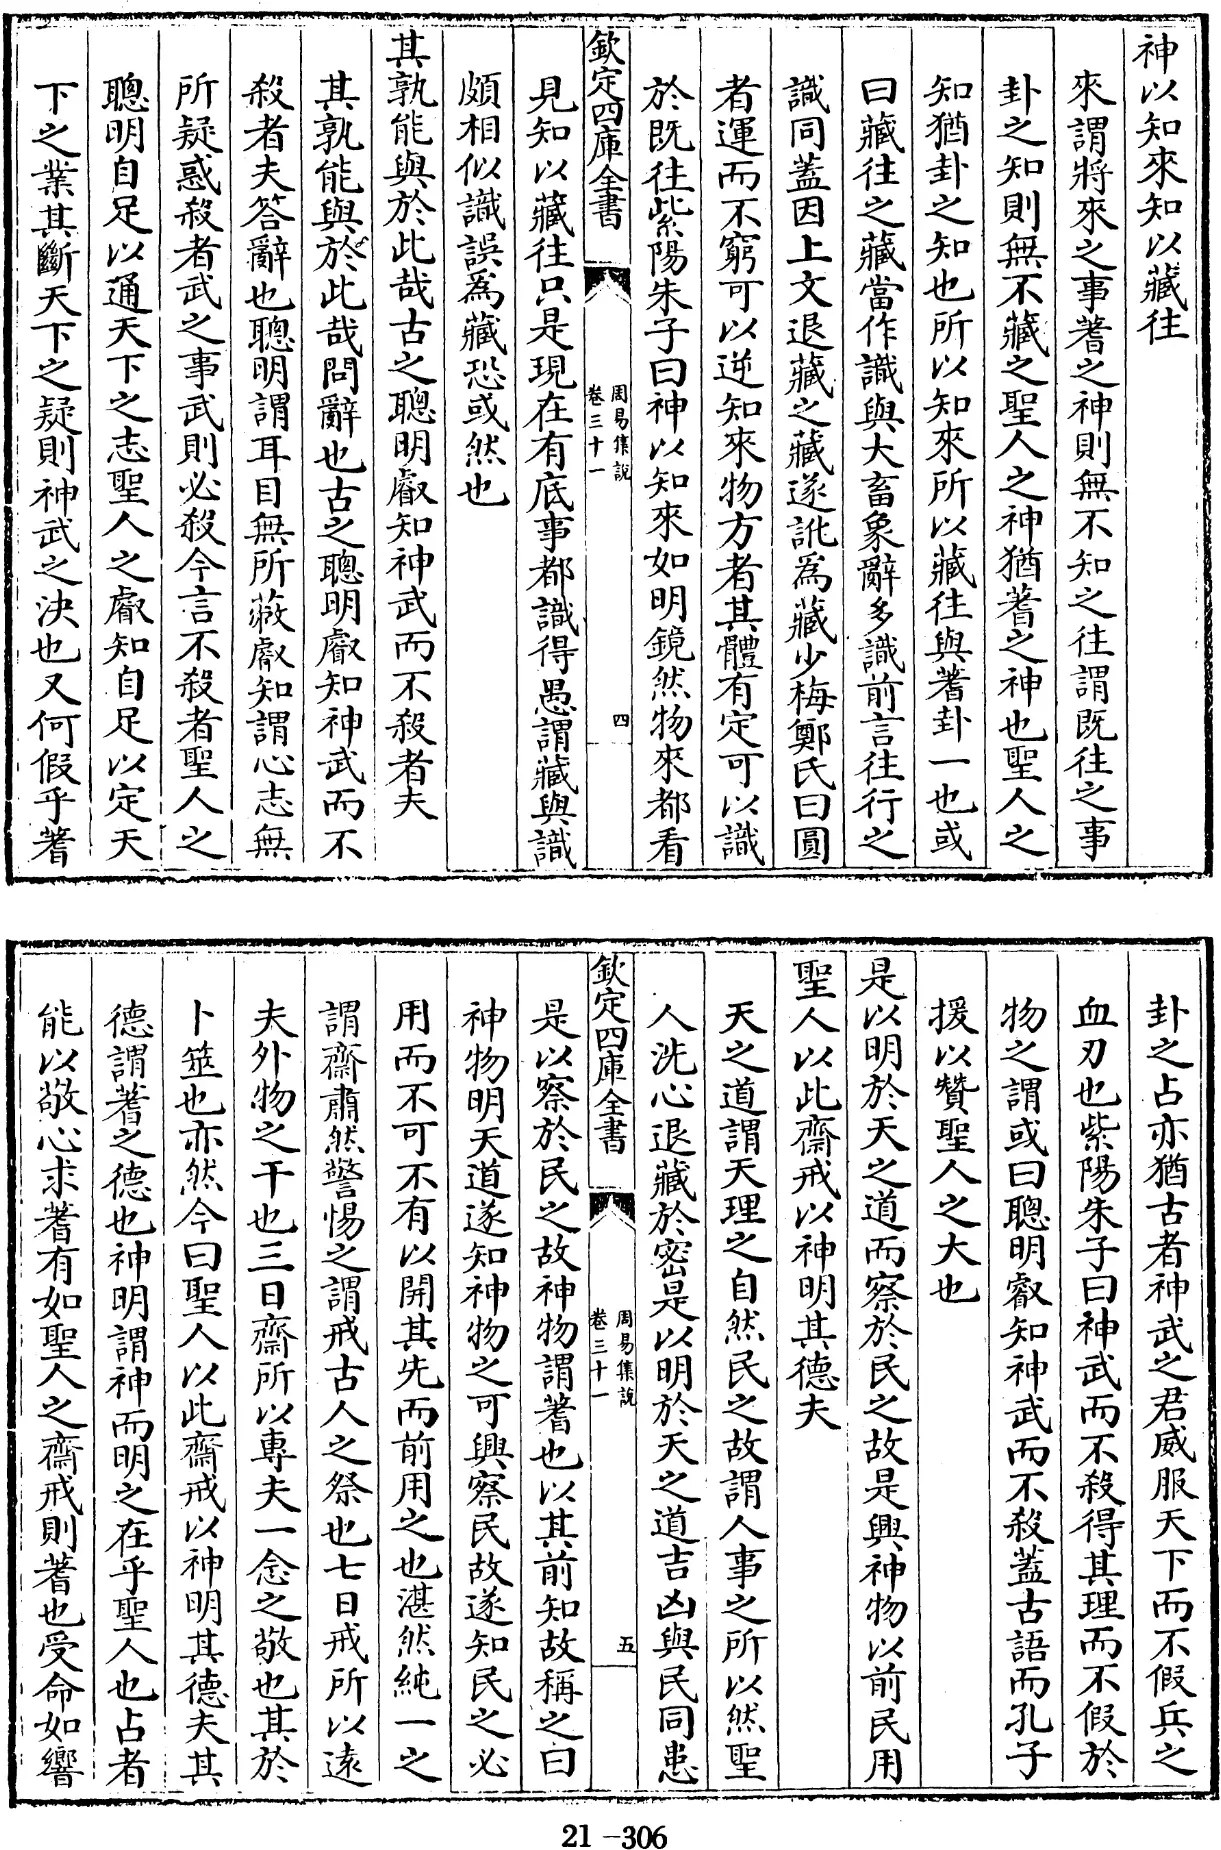 神以知來知以藏往
來謂將來之事蓍之神則無不知之往謂既往之事
卦之知則無不藏之聖人之神猶蓍之神也聖人之
知猶卦之知也所以知來所以藏往與蓍卦一也或
曰藏往之藏當作識與大畜象辭多識前言往行之
識同蓋因上文退藏之藏遂訛為藏少梅鄭氏曰圓
者運而不窮可以逆知來物方者其體有定可以識
於既往紫陽朱子曰神以知來如明鏡然物來都看
欽定四庫全書
周易集說
卷三十一
四
見知以藏往只是現在有底事都識得愚謂藏與識
頗相似識誤為藏恐或然也
其孰能與於此哉古之聰明叡知神武而不殺者夫
其孰能與於此哉問辭也古之聰明叡知神武而不
殺者夫答辭也聰明謂耳目無所蔽叡知謂心志無
所疑惑殺者武之事武則必殺今言不殺者聖人之
聰明自足以通天下之志聖人之叡知自足以定天
下之業其斷天下之疑則神武之決也又何假乎蓍
卦之占亦猶古者神武之君威服天下而不假兵之
血刃也紫陽朱子曰神武而不殺得其理而不假於
物之謂或曰聰明叡知神武而不殺蓋古語而孔子
援以贊聖人之大也
是以明於天之道而察於民之故是興神物以前民用
聖人以此齋戒以神明其德夫
天之道謂天理之自然民之故謂人事之所以然聖
人洗心退藏於密是以明於天之道吉凶與民同患
欽定四庫全書
周易集說
卷三十一
五
是以察於民之故神物謂蓍也以其前知故稱之曰
神物明天道遂知神物之可興察民故遂知民之必
用而不可不有以開其先而前用之也湛然純一之
謂齋肅然警惕之謂戒古人之祭也七日戒所以遠
夫外物之干也三日齋所以專夫一念之敬也其於
卜筮也亦然今曰聖人以此齋戒以神明其德夫其
德謂蓍之德也神明謂神而明之在乎聖人也占者
能以敬心求蓍有如聖人之齋戒則蓍也受命如響
21-306